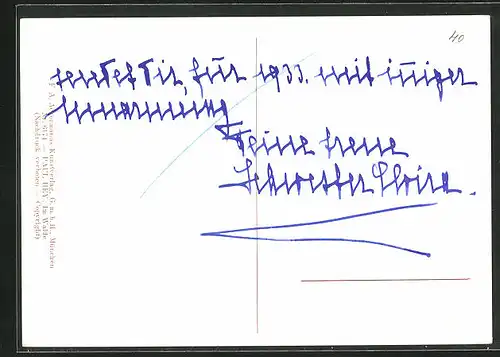 sendet Dir, für 1933. mit inniger
Umarmung
Deine treue
Schwester
40
F. A. Ackermanns Kunstverlag, G. m. b. H., München
PAUL HEY, Im Walde
(Nachdruck verboten — Copyright)